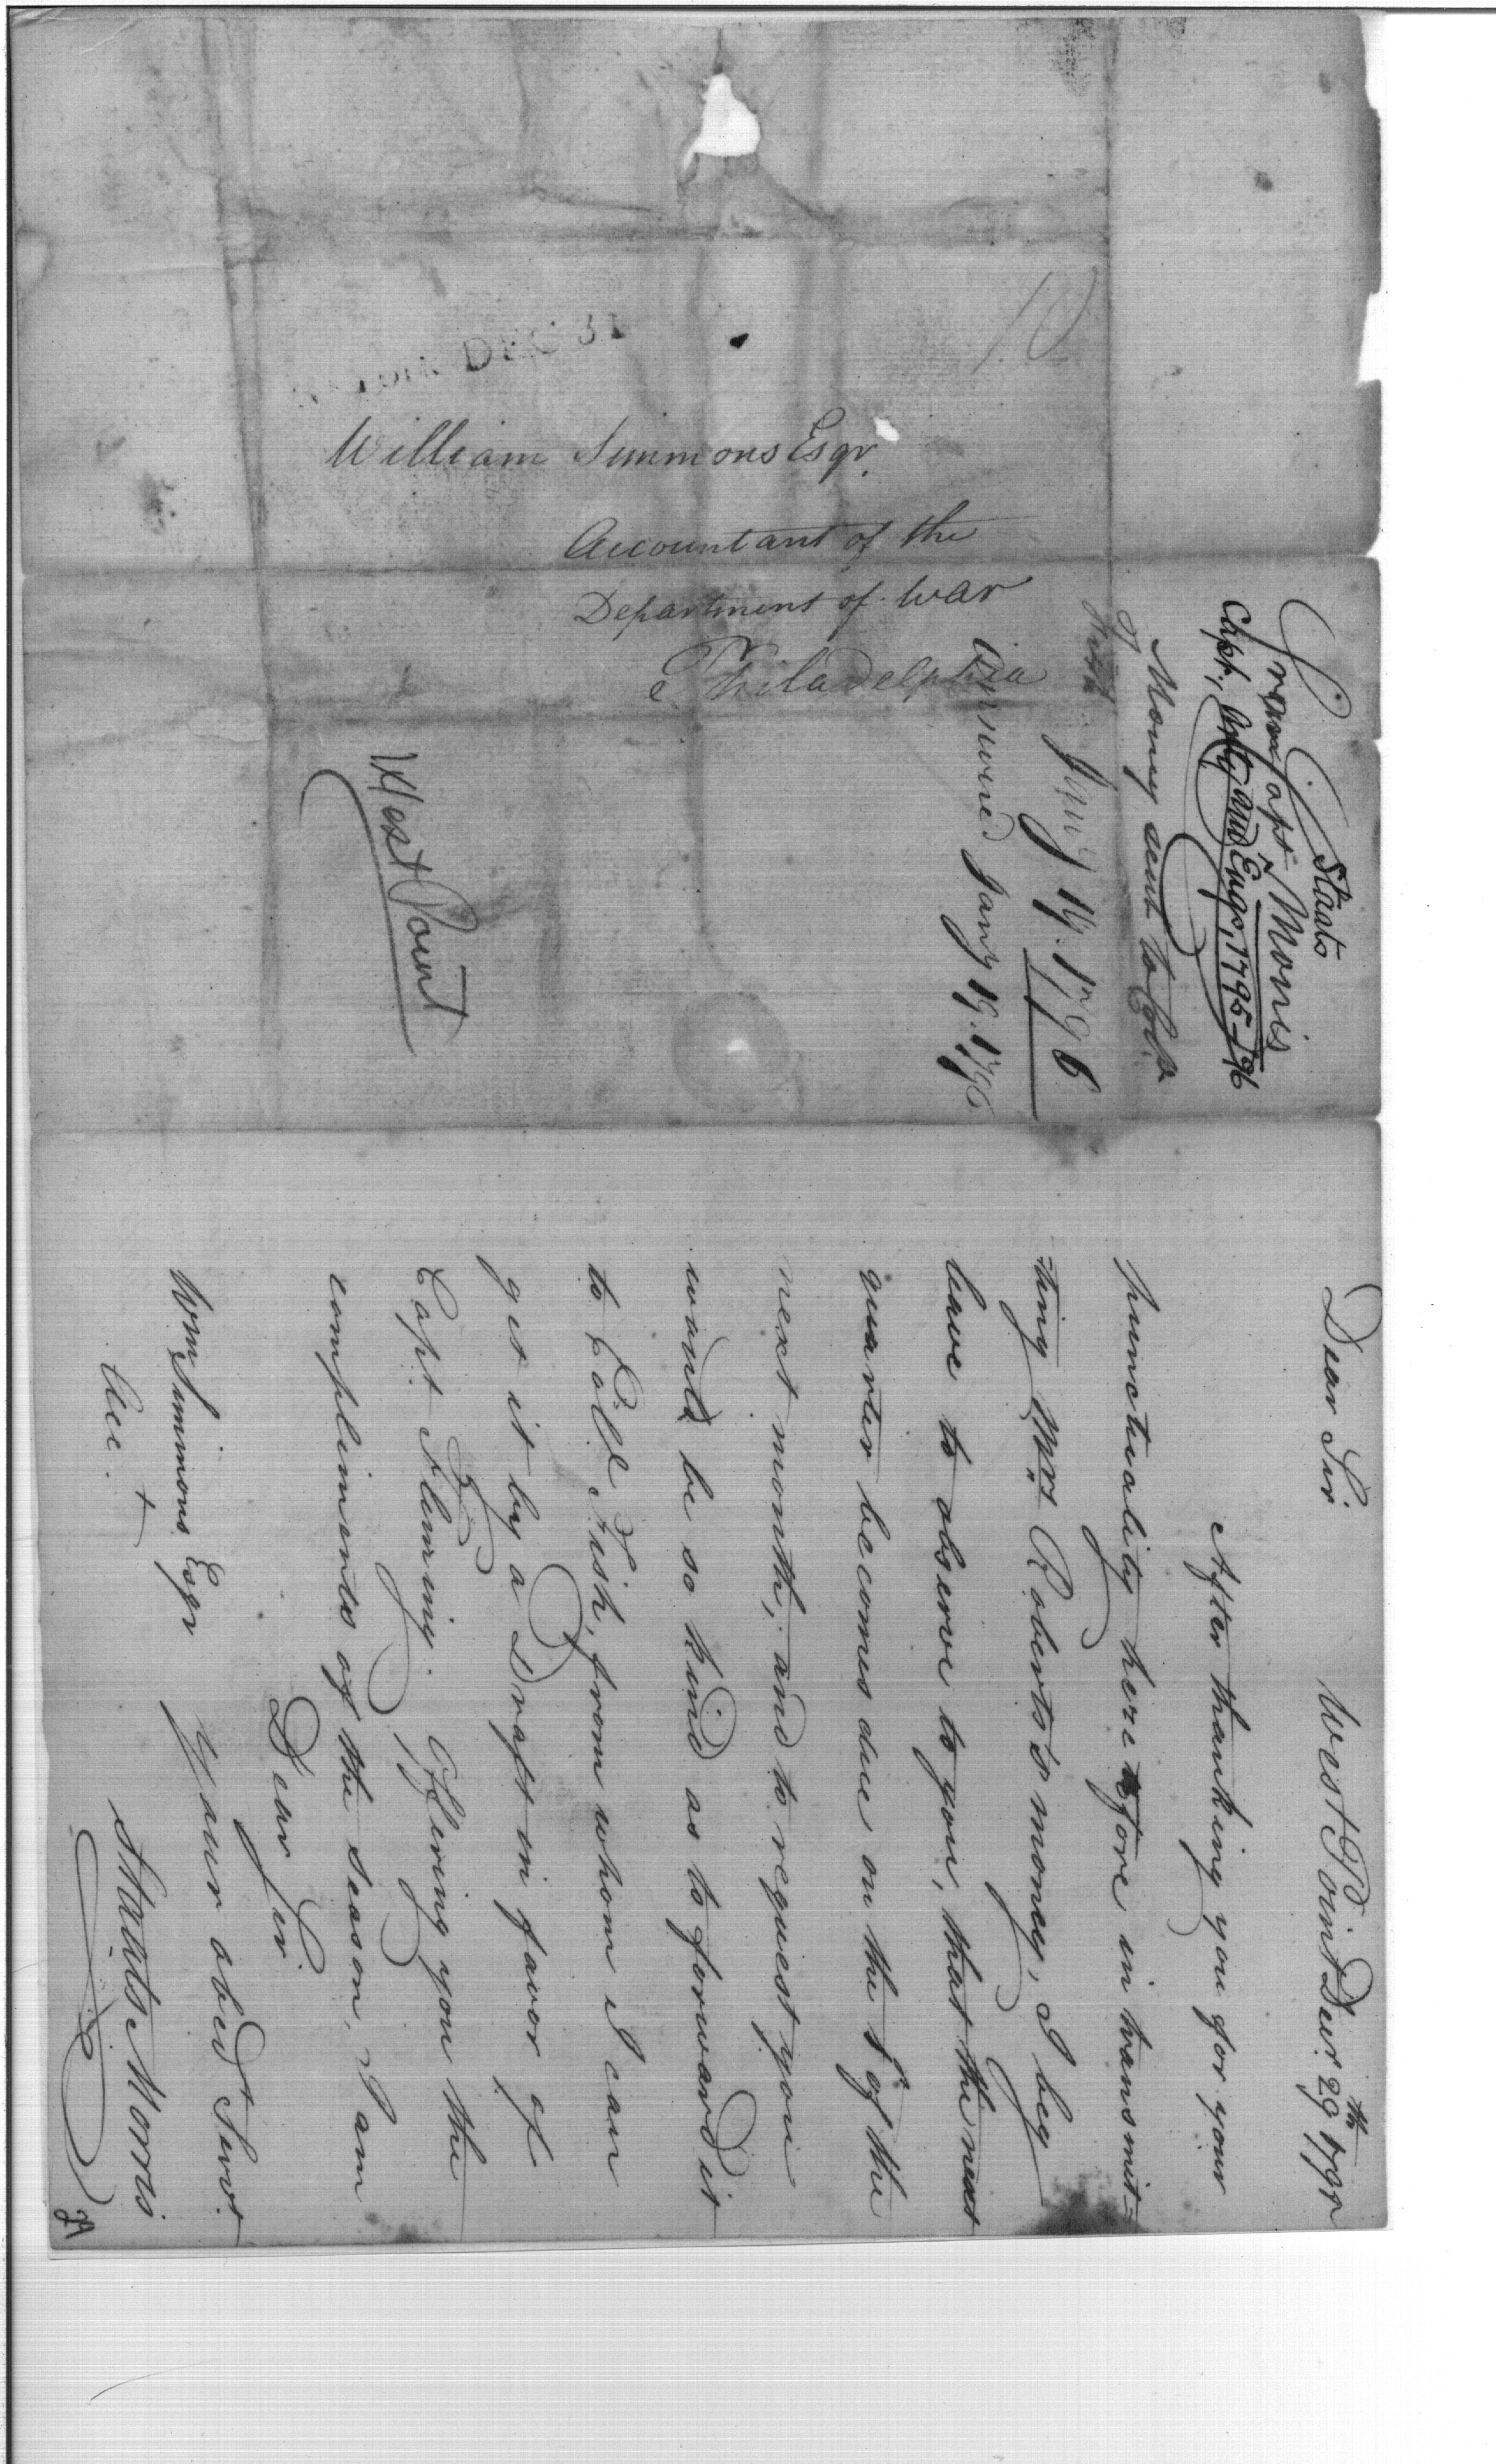 West Point Decr. 29th 1795
Dear Sir
After thanking you for your
punctuality heretofore in transmit=
=ting Mrs. Roberts's money, I beg
leave to observe to you, that the next
quarter becomes due on the 1st of the
next month, and to request you
would be so kind as to forward it
to Coll. Fish, from whom I can
get it by a Draft in favor of
Capt. Fleming. Offering you the
compliments of the season, I am
Dear Sir
Your obed Servt
Staats Morris
Wm Simmons Esqr
Acc.
DEC 31
10
William Simmons Esqr.
Accountant of the
Department of War
Philadelphia
West Point
Staats
From Capt. Morris
Capt., Arty and Engs, 1795-96
Money sent to Col.
Jany 19. 1796
Answered Jany 19. 1796